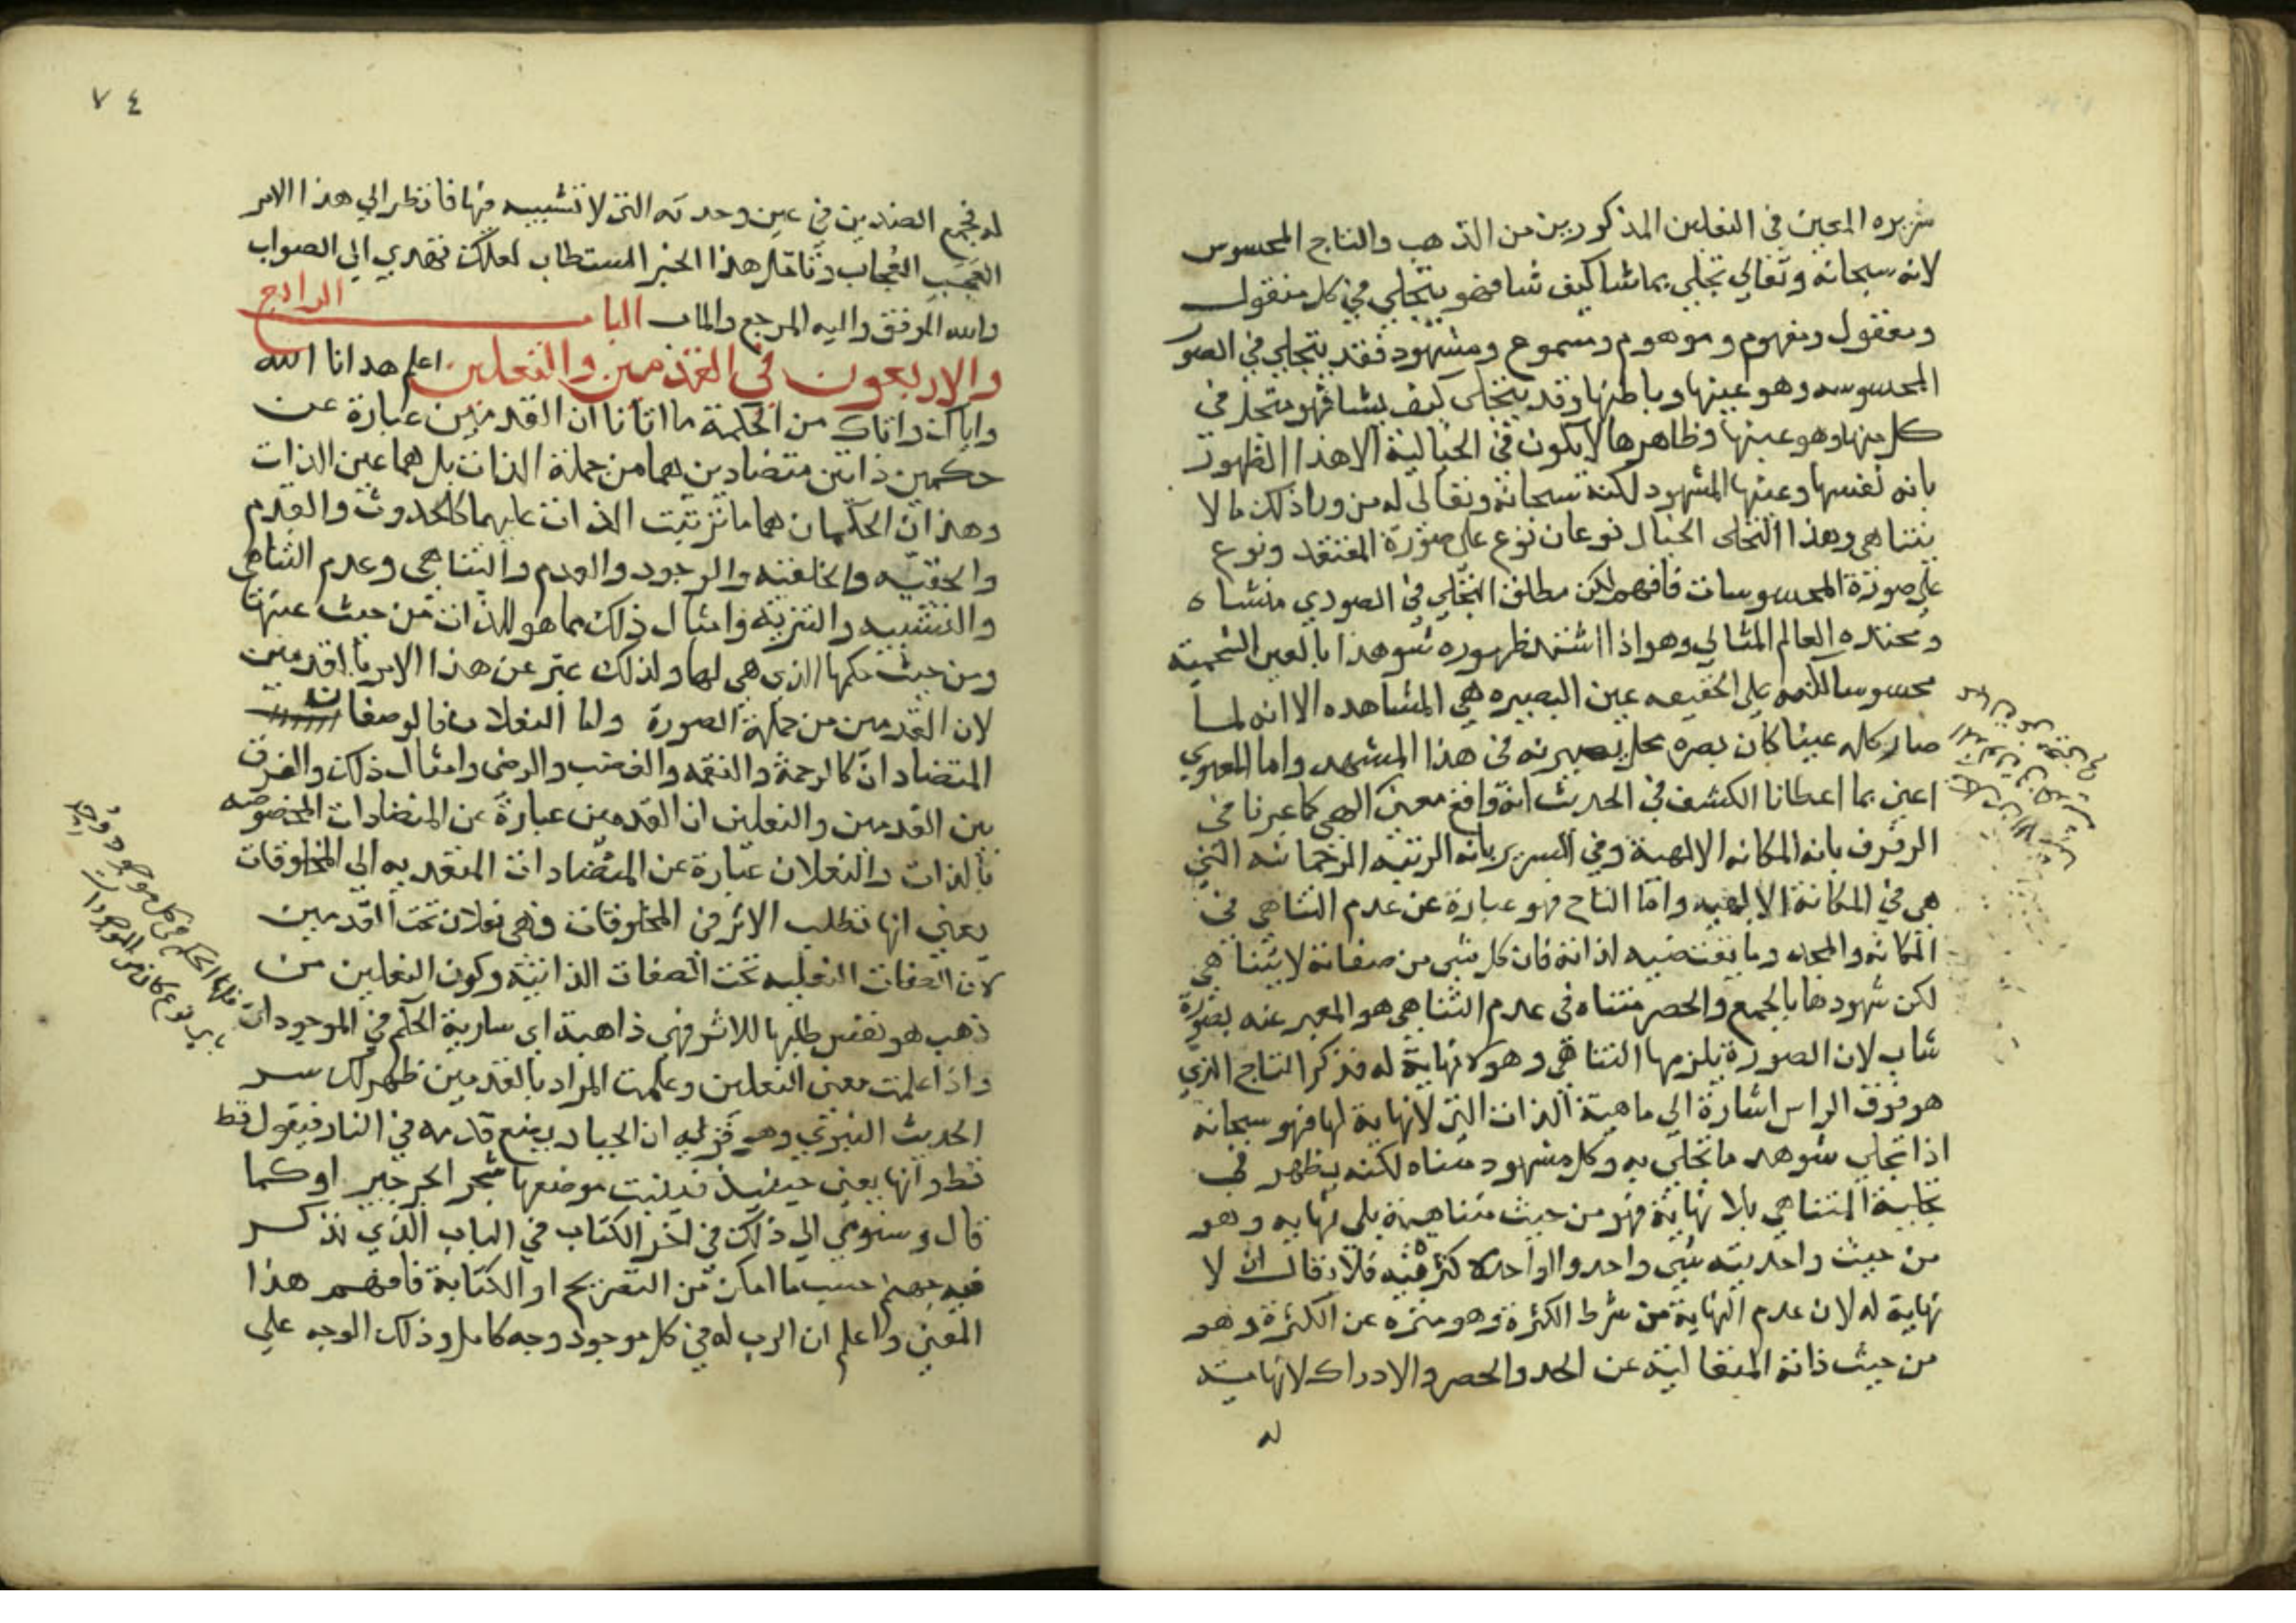 سريره المعين في النعلين المذكورين من الذهب والتاج المحسوس
لانه سبحانه وتعالي تجلي بما شا كيف شا فهو يتجلي في كل منقول
ومعقول ومفهوم وموهوم ومسموع ومشهود فقد يتجلي في الصور
المحسوسه وهو عينها وباطنها وقد يتجلي كيف يشا فهو متجل في
كل منها وهو عينها وظاهرها لا يكون في الخيالية الا هذا الظهور
بانه نفسها وعينها المشهود لكنه سبحانه وتعالى له من وراذلك ما لا
يتناهي وهذا التجلي الخيال نوعان نوع على صورة المعتقد ونوع
علي صورة المحسوسات فافهم لكن مطلق التجلي في الصوري منشاه
ومحتده العالم المثالي وهو اذا اشتد ظهوره شوهد ا بالعين الشحمية
محسوسا لكنه علي الحقيقه عين البصيره هي المشاهده الا انه لما
صار كله عينا كان بصره محل بصيرته في هذا المشهد واما المعنوي
اعين بما اعطانا الكشف في الحديث انه واقع معنى الهي كما عبرنا في
الرفرف بانه المكانه الالهية وفي السرير بانه الرتبه الرحمانيه التي
هي في المكانة الالهيه واما التاج فهو عبارة عن عدم التناهي في
المكانه والمجد وما يقتضيه لذاته فان كل شي من صفاته لا يتناهي
لكن شهودها بالجمع والحصر متناه في عدم التناهي هو المعبر عنه بصورة
شاب لان الصورة يلزمها التناهي وهو لا نهاية له فذكر التاج الذي
هو فوق الراس اشارة الي ماهية الذات التي لا نهاية لها فهو سبحانه
اذا تجلي شوهد ما تجلي به وكل مشهود متناه لكنه يظهر في
تجليه المتناهي بلا نهاية فهو من حيث متناهية بلي نهايه وهو
من حيث واحديته شي واحد والواحد لا كثرة فيه فلا يقال ان لا
نهاية له لان عدم النهاية من شرط الكثرة وهو منزه عن الكثرة وهو
من حيث ذاته المتعالية عن الحد والحصر والادراك لا نهاية
له
٧٤
له فجمع الضدين في عين وحدته التي لا تشبيه فيها فانظر الي هذا الامر
العجب العُجاب وتامل هذا الخبر المستطاب لعلك تهتدي الي الصواب
والله الموفق واليه المرجع والماب الباب الرابع
والاربعون في القدمين والنعلين اعلم هدانا الله
واياك واتاك من الحكمة ما اتانا ان القدمين عبارة عن
حكمين ذاتين متضادين هما من جملة الذات بل هما عين الذات
وهذان الحكمان هما ما ترتبت الذات عليهما كالحدوث والقدم
والحقيه والخلقيه والوجود والعدم والتناهي وعدم التناهي
والتشبيه والتنزيه وامثال ذلك مما هو للذات من حيث عينها
ومن حيث حكمها الذي هي لها ولذلك عبر عن هذا الامر بالقدمين
لان القدمين من جملة الصورة واما النعلان فالوصفان
المتضادان كالرحمة والنقمه والغضب والرضى وامثال ذلك والفرق
بين القدمين والنعلين ان القدمين عبارة عن المتضادات المخصوصه
بالذات والنعلان عبارة عن المتضادات المتعديه الي المخلوقات
يعني انها تطلب الاثر في المخلوقات فهي نعلان تحت القدمين
لان الصفات الفعليه تحت الصفات الذاتية وكون النعلين من
ذهب هو نفس طلبها للاثر فهي ذاهبة اي سارية الحكم في الموجودات
واذا علمت معنى النعلين وعلمت المراد بالقدمين ظهر لك سر
الحديث النبوي وهو قوله ان الجبار يضع قدمه في النار فيقول قط
قط وانها يفنى حينيذ فينبت موضعها شجر الجرجير او كما
قال وسنومي الي ذلك في اخر الكتاب في الباب الذي نذكر
فيه جهنم حسب ما امكن من التصريح او الكناية فافهم هذا
المعنى واعلم ان الرب له في كل موجود وجه كامل وذلك الوجه علي
فلها الحكم في كل موجود وجد
باي نوع كان من الموجودات